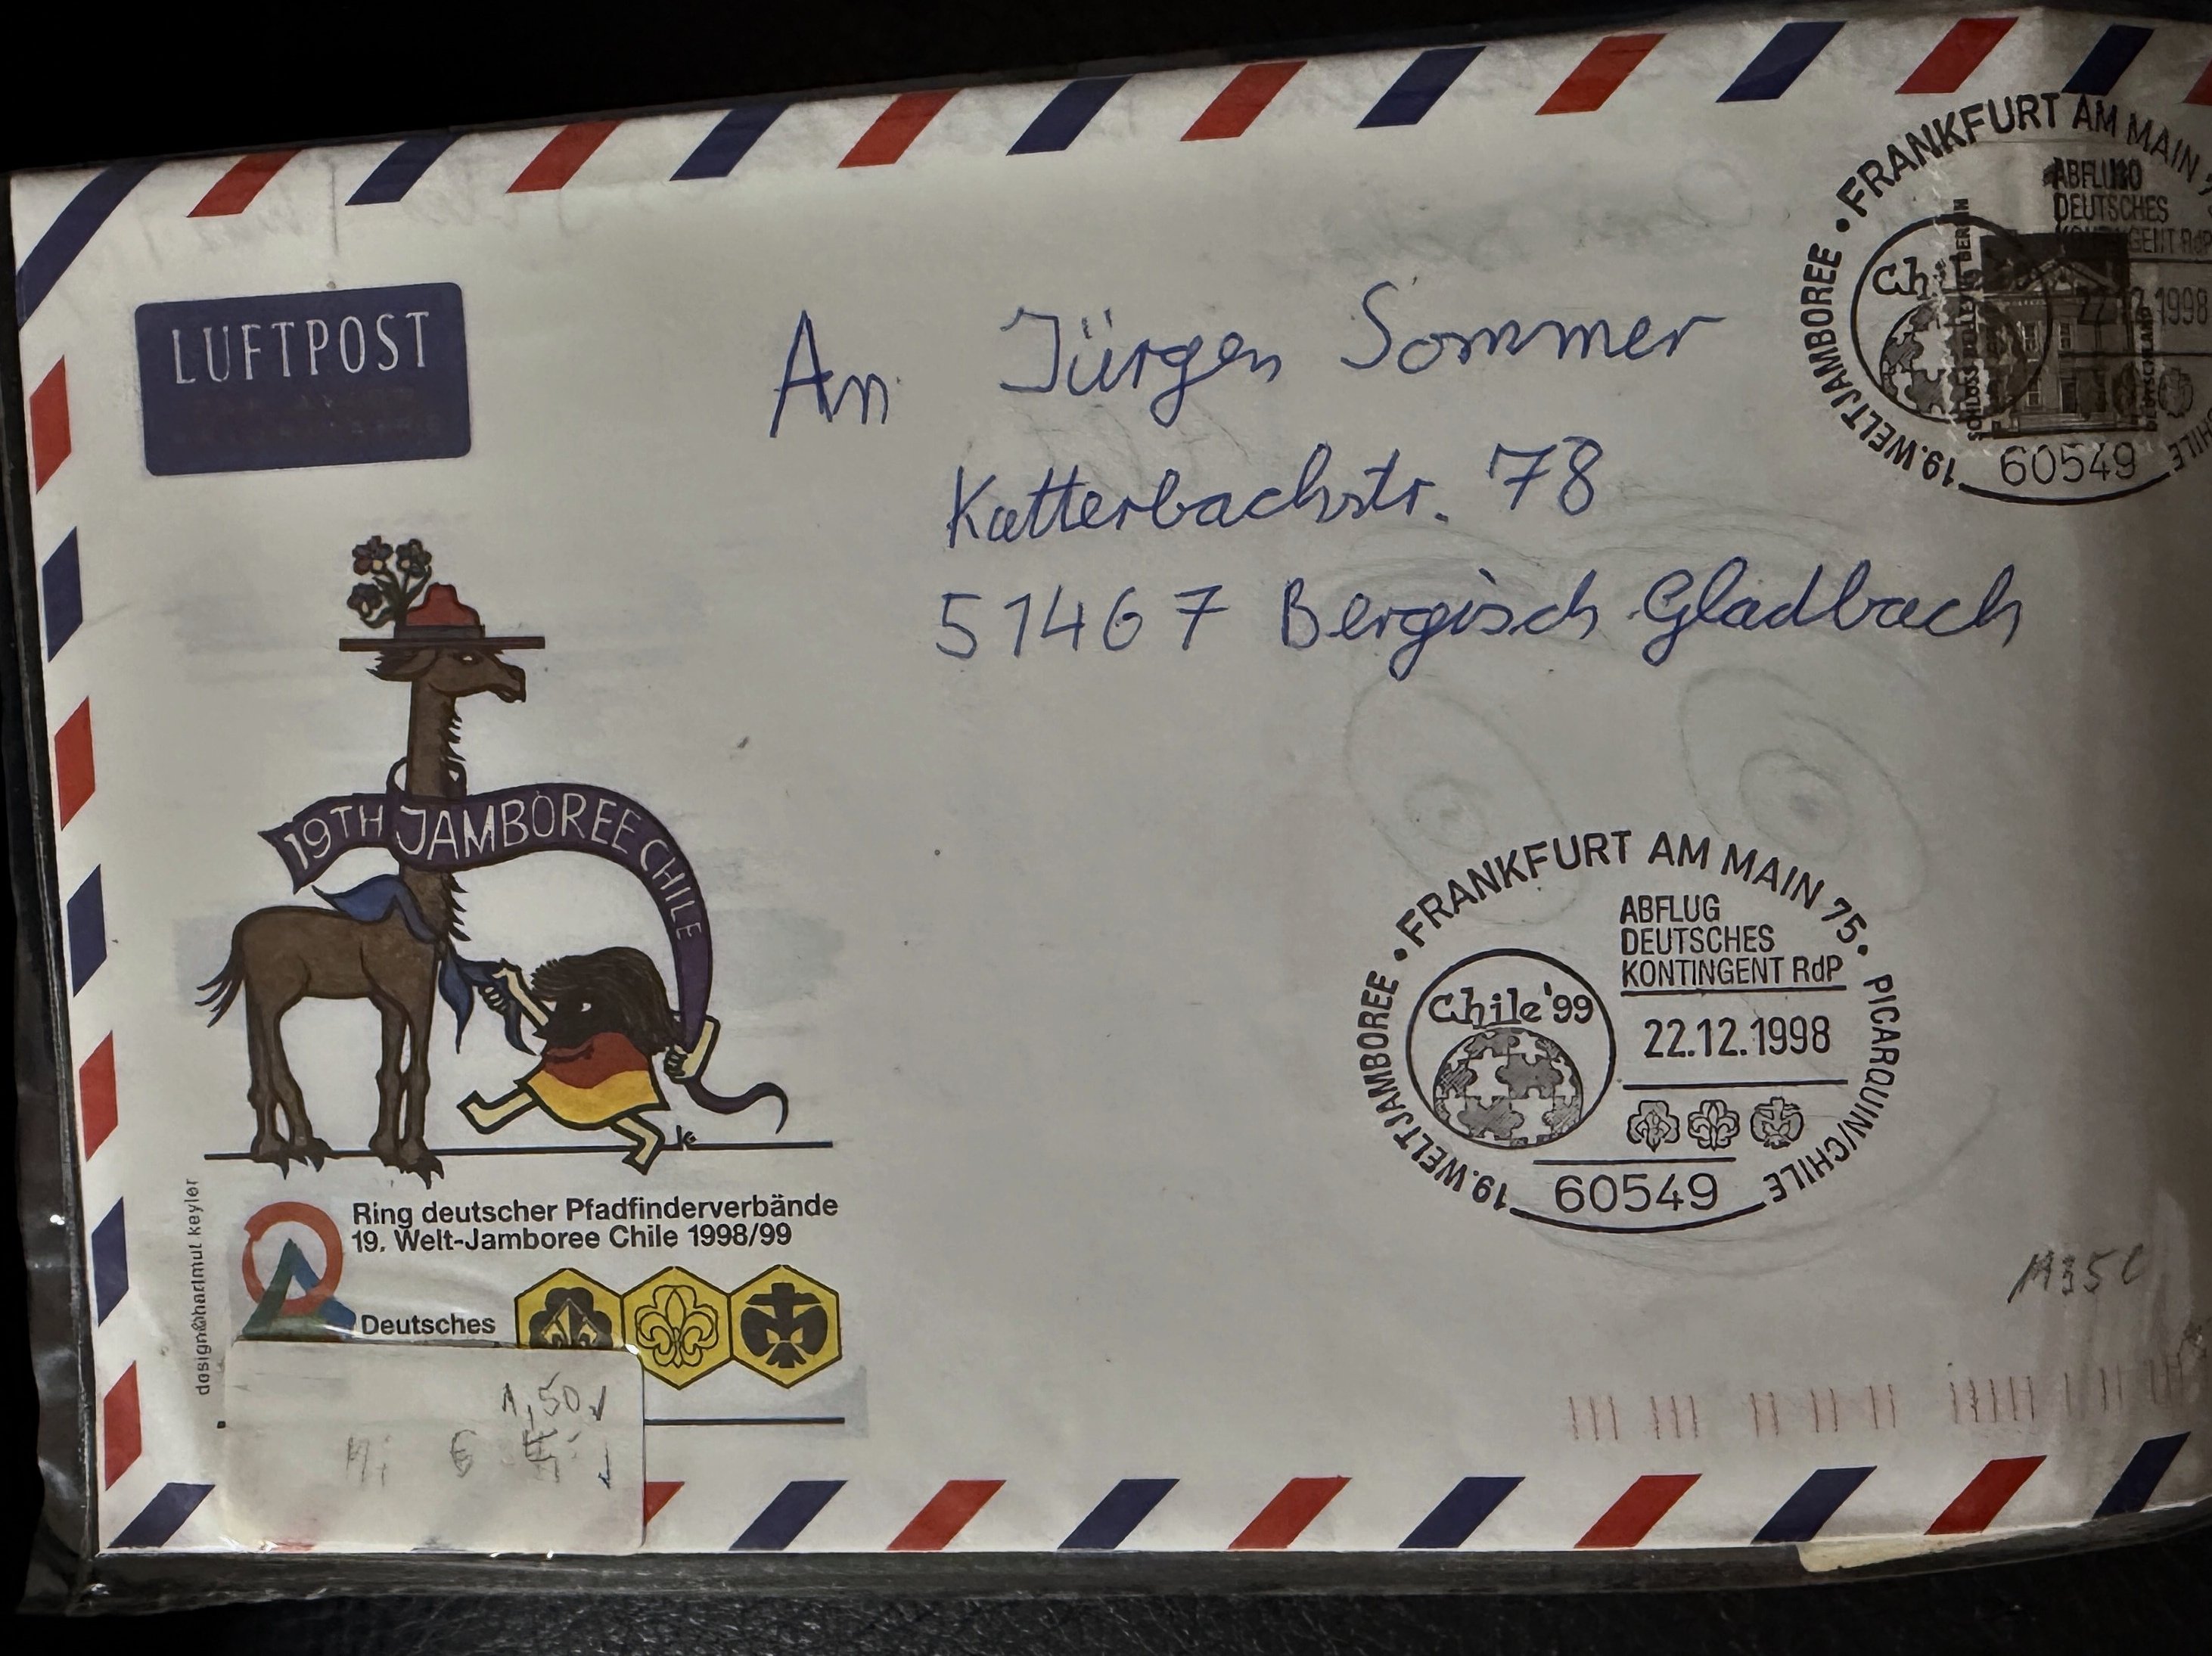 LUFTPOST
An Jürgen Sommer
Katterbachstr. 78
51467 Bergisch Gladbach
• FRANKFURT AM MAIN
19. WELTJAMBOREE
ABFLUG
DEUTSCHES
KONTINGENT RdP
22.12.1998
SCHLOSS BELLEVUE BERLIN
DEUTSCHLAND
60549
19TH JAMBOREE CHILE
• FRANKFURT AM MAIN 75 •
19. WELTJAMBOREE
PICARQUIN/CHILE
ABFLUG
DEUTSCHES
KONTINGENT RdP
Chile '99
22.12.1998
60549
design©hartmut keyler
Ring deutscher Pfadfinderverbände
19. Welt-Jamboree Chile 1998/99
Deutsches
1,50